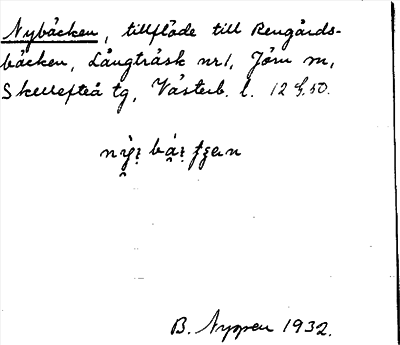 Nybäcken, tillflöde till Rengårds-
bäcken, Långträsk nr 1, Jörn sn,
Skellefteå tg, Västerb. l.
B. Nyppen 1932.